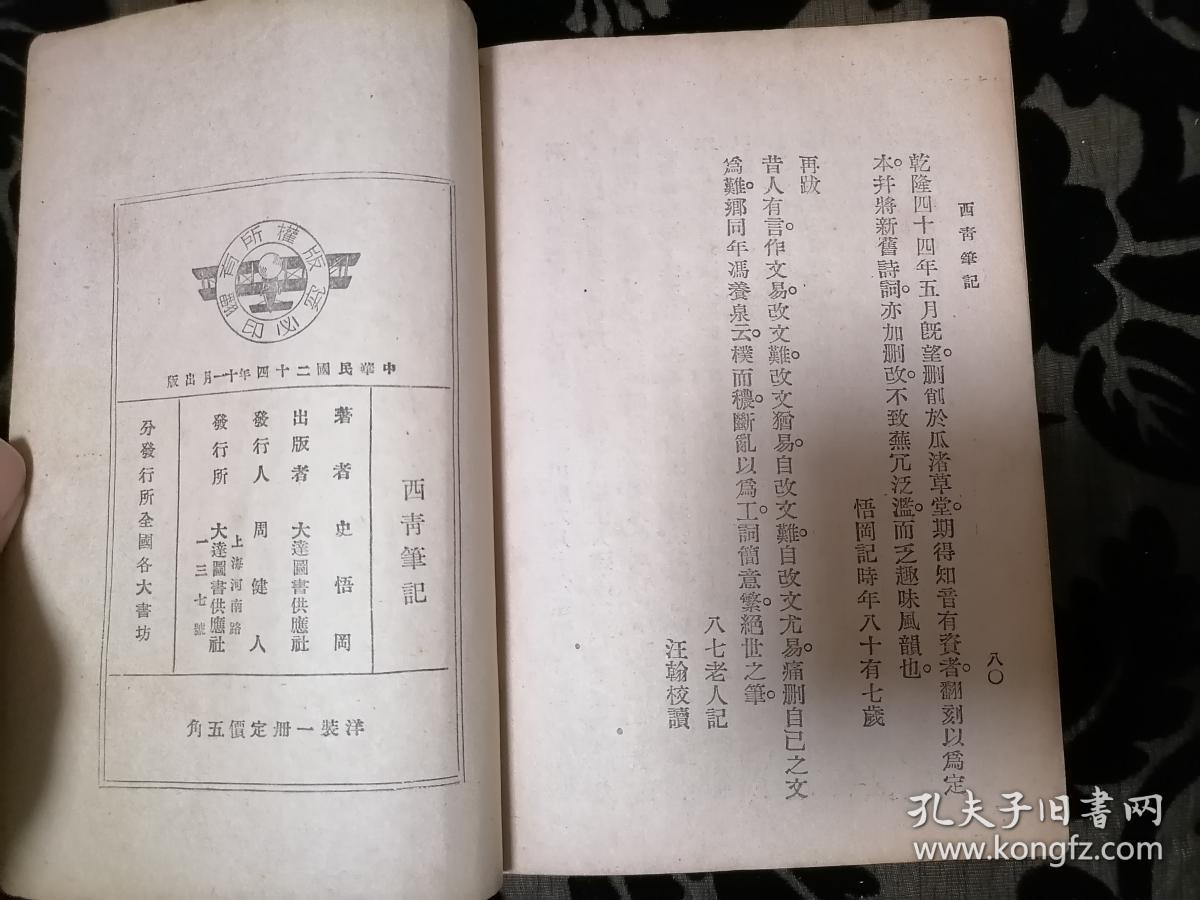 西青筆記
八〇
乾隆四十四年五月旣望。删削於瓜渚草堂。期得知音有資者。翻刻以爲定
本。幷將新舊詩詞。亦加删改。不致蕪冗泛濫。而乏趣味風韻也。
悟岡記時年八十有七歲
再跋
昔人有言。作文易。改文難。改文猶易。自改文難。自改文尤易。痛删自己之文
爲難。鄉同年馮養泉云。樸而穠。斷亂以爲工。詞簡意繁。絕世之筆。
八七老人記
汪翰校讀
版權所有
翻印必究
中華民國二十四年十一月出版
西青筆記
著者 史悟岡
出版者 大達圖書供應社
發行人 周健人
發行所 大達圖書供應社
上海河南路
一三七號
分發行所全國各大書坊
洋裝一册定價五角
孔夫子旧书网
www.kongfz.com